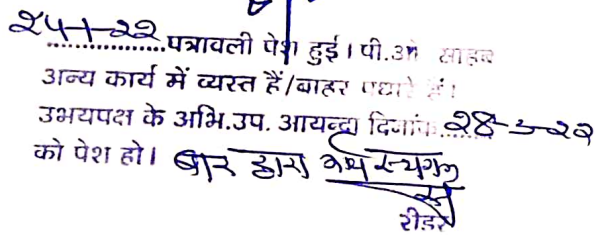 24-1-22 पत्रावली पेश हुई। पी.ओ साहब
अन्य कार्य में व्यस्त हैं/बाहर पधारे हैं।
उभयपक्ष के अभि.उप. आयन्दा दिनांक 28-3-22
को पेश हो। बार द्वारा कार्य स्थगन
रीडर